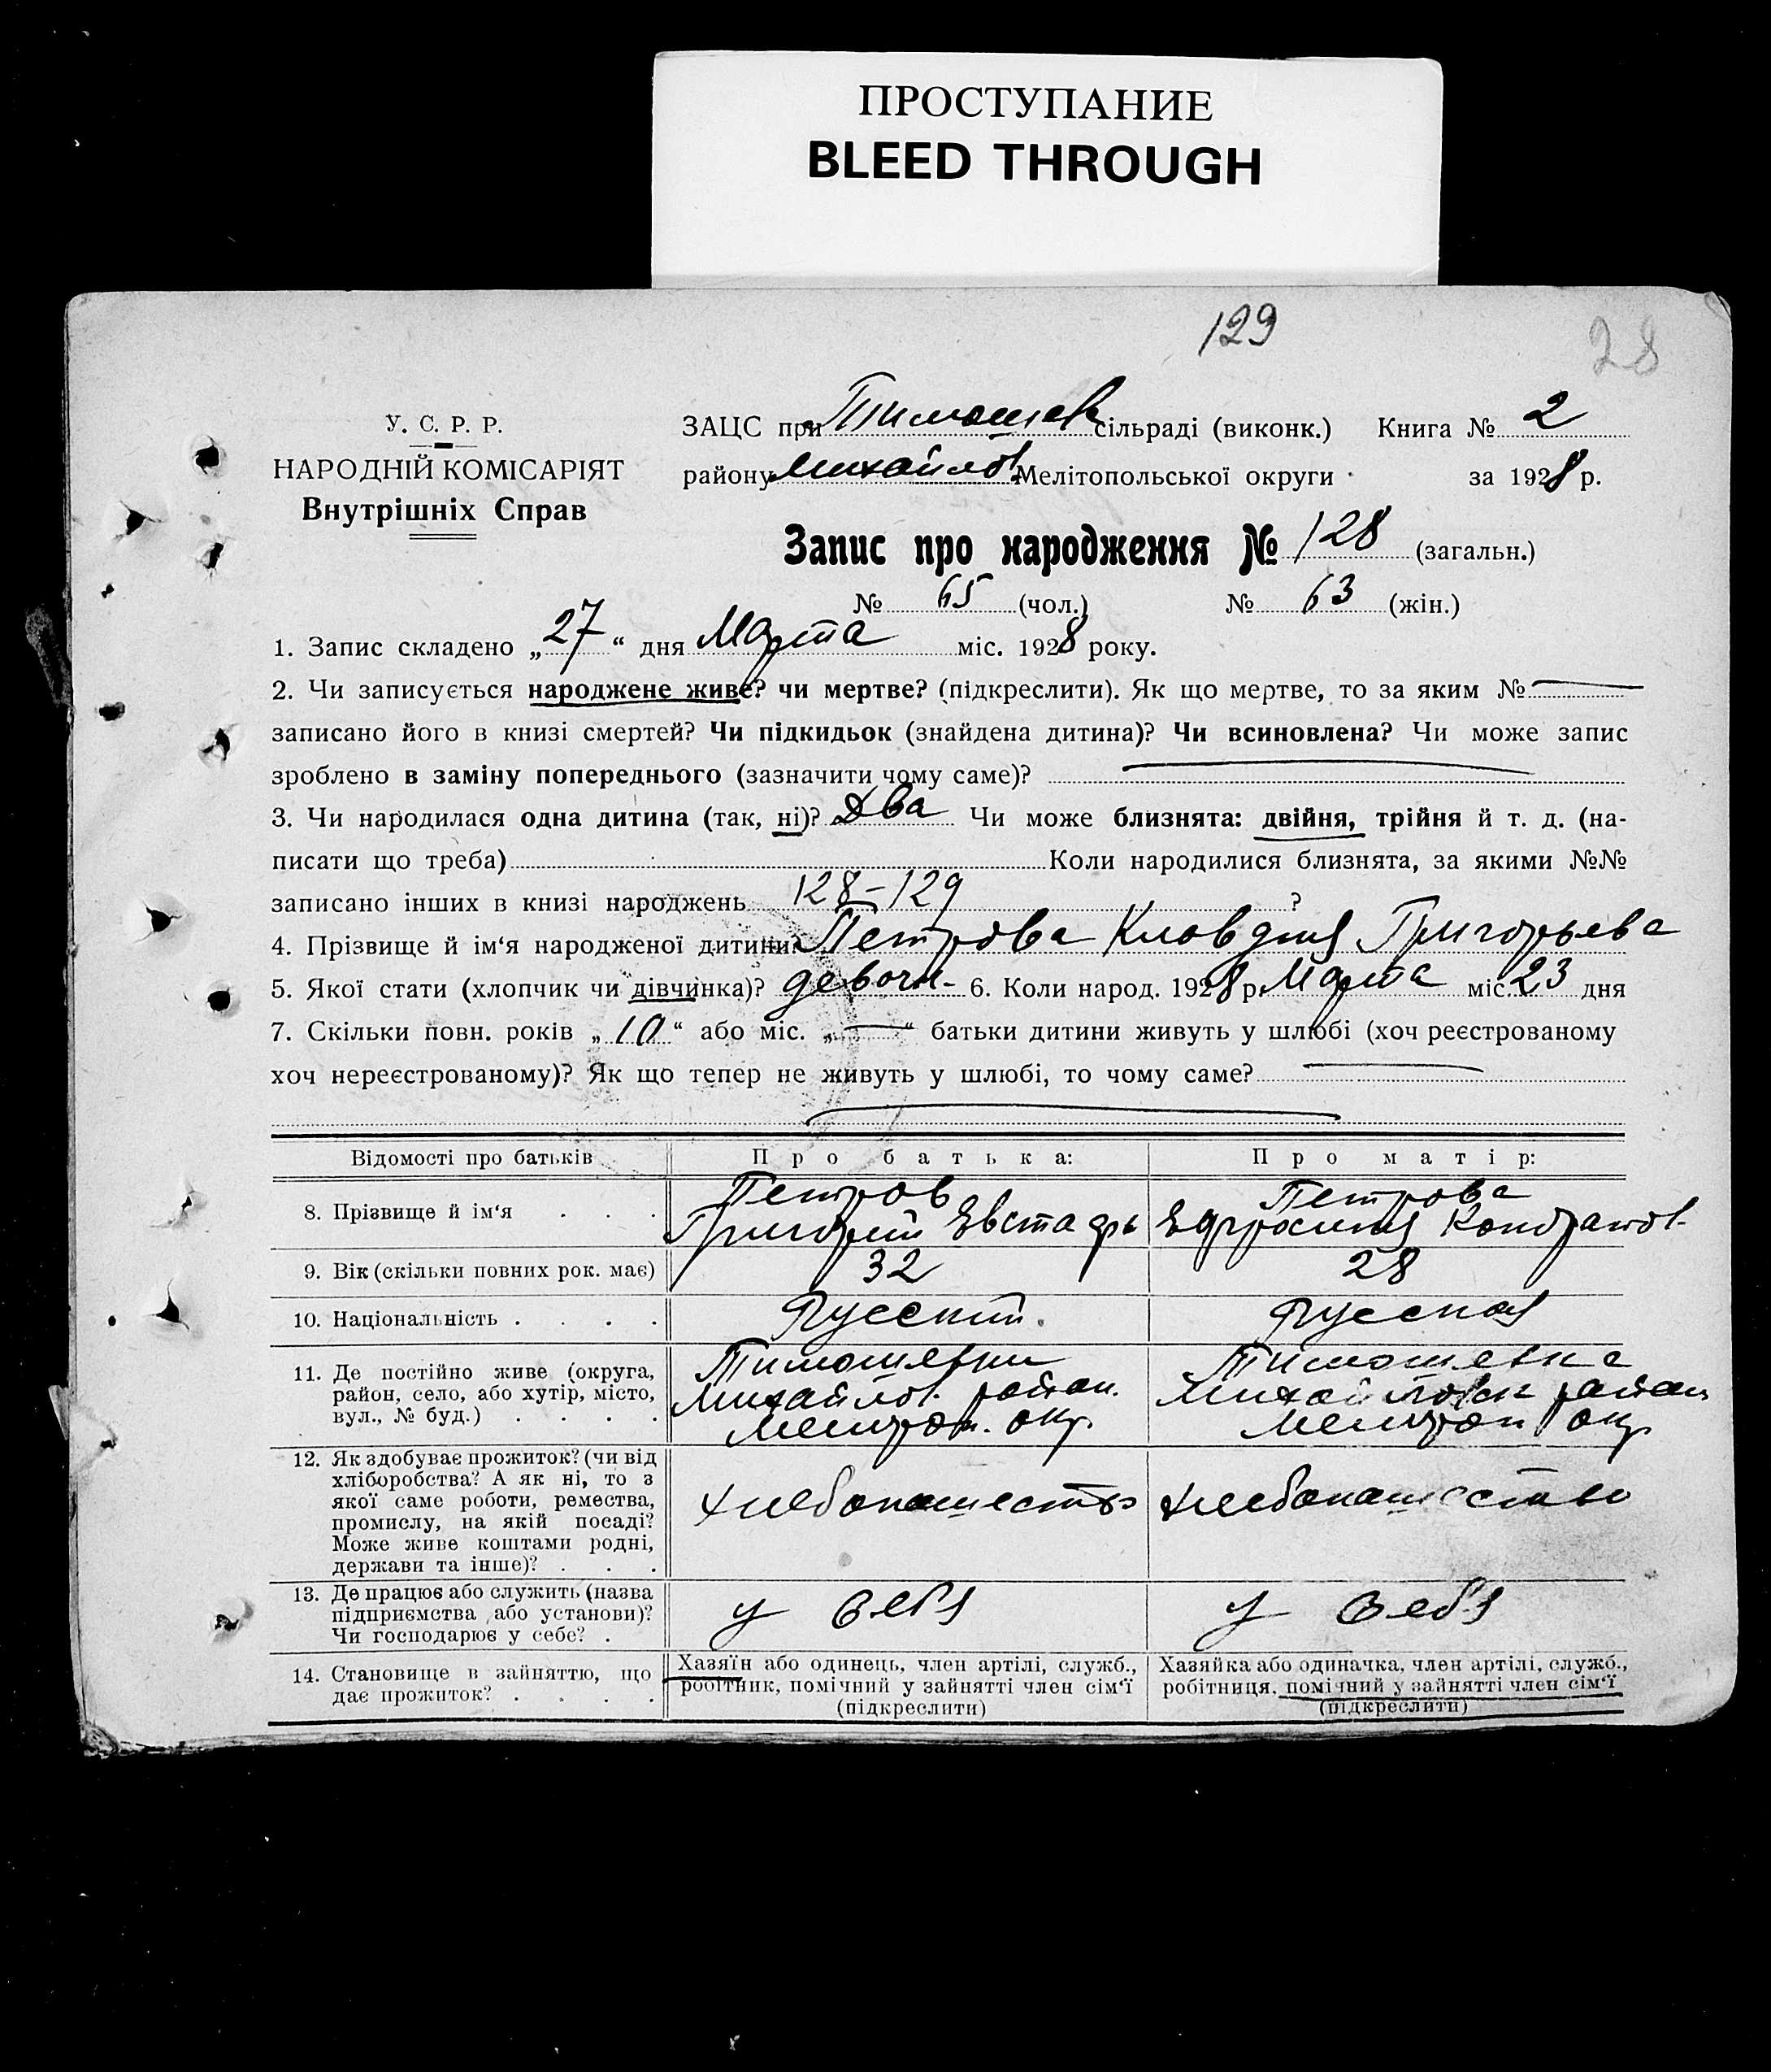 ПРОСТУПАНИЕ
BLEED THROUGH
129
28
У. С. Р. Р.
НАРОДНІЙ КОМІСАРІЯТ
Внутрішніх Справ
ЗАЦС при Тимошев сільраді (виконк.) Книга № 2
району Михайлов Мелітопольської округи за 1928 р.
Запис про народження № 128 (загальн.)
№ 65 (чол.) № 63 (жін.)
1. Запис складено „27“ дня Марта міс. 1928 року.
2. Чи записується народжене живе? чи мертве? (підкреслити). Як що мертве, то за яким №
записано його в книзі смертей? Чи підкидьок (знайдена дитина)? Чи всиновлена? Чи може запис
зроблено в заміну попереднього (зазначити чому саме)?
3. Чи народилася одна дитина (так, ні)? Два Чи може близнята: двійня, трійня й т. д. (на-
писати що треба) Коли народилися близнята, за якими №№
записано інших в книзі народжень 128-129 ?
4. Прізвище й ім‘я народженої дитини? Петрова Клавдия Григорьева
5. Якої стати (хлопчик чи дівчинка)? девочк- 6. Коли народ. 1928 р. Марта міс. 23 дня
7. Скільки повн. років „10“ або міс. „—“ батьки дитини живуть у шлюбі (хоч реєстрованому
хоч нереєстрованому)? Як що тепер не живуть у шлюбі, то чому саме?
Відомості про батьків Про батька: Про матір:
8. Прізвище й ім‘я . . . Петров Григорий Евстафь Петрова Ефросиния Кондратов-
9. Вік (скільки повних рок. має) 32 28
10. Національність . . . . Русский. Русская
11. Де постійно живе (округа,
район, село, або хутір, місто,
вул., № буд.) . . . .
Тимошевки
Михайлов. район.
Мелитоп. окр.
Тимошевка
Михайловск район
Мелитоп окр
12. Як здобуває прожиток? (чи від
хліборобства? А як ні, то з
якої саме роботи, ремества,
промислу, на якій посаді?
Може живе коштами родні,
держави та інше)? . . .
хлебопашество хлебопашество
13. Де працює або служить (назва
підприємства або установи)?
Чи господарює у себе? .
у себя у себя
14. Становище в зайняттю, що
дає прожиток? . . . .
Хазяїн або одинець, член артілі, служб.,
робітник, помічний у зайнятті член сім‘ї
(підкреслити)
Хазяйка або одиначка, член артілі, служб.,
робітниця, помічний у зайнятті член сім‘ї
(підкреслити)